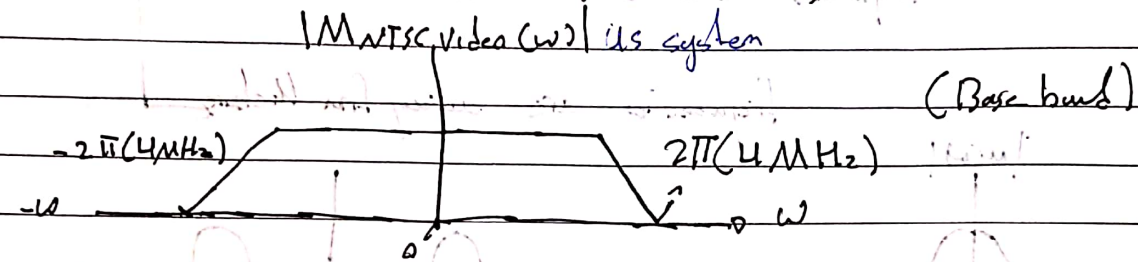 |M NTSC,Video (ω)| US system
(Base band)
-2π(4MHz) 2π(4MHz)
-ω 0 ω